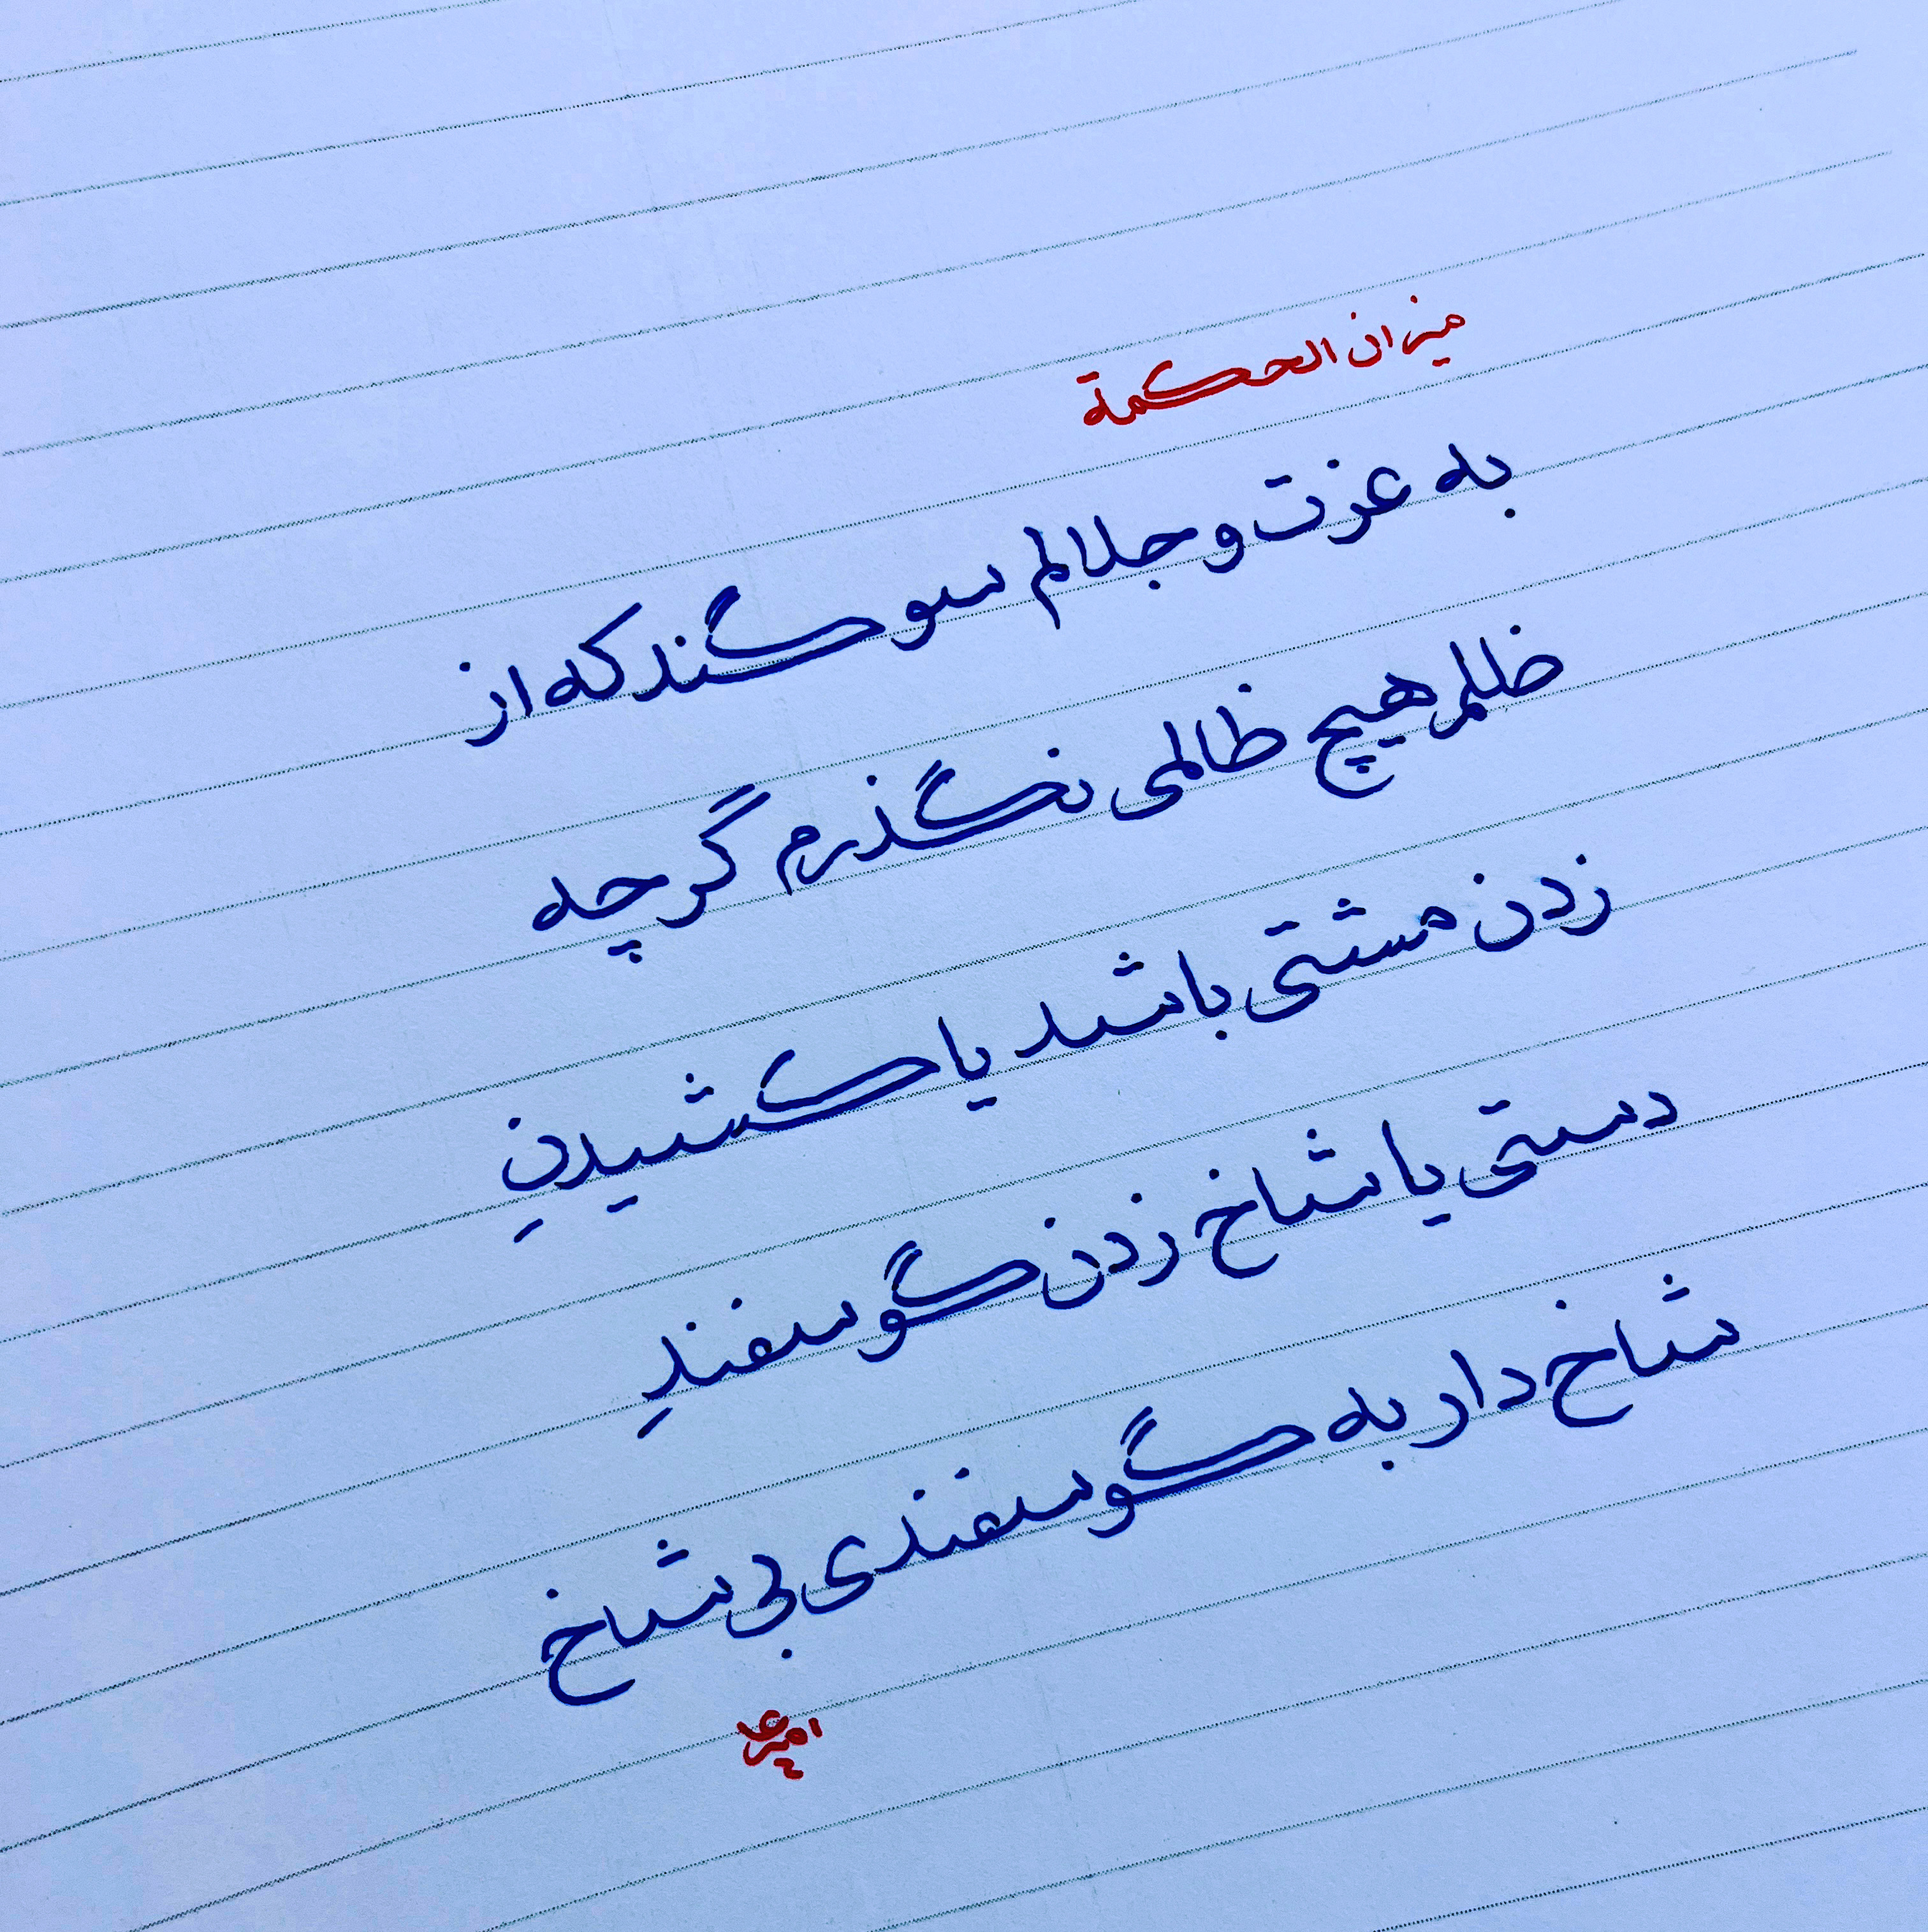 میزان الحکمة
به عزت و جلالم سوگند که از
ظلم هیچ ظالمی نگذرم گرچه
زدن مشتی باشد یا کشیدنِ
دستی یا شاخ زدن گوسفندِ
شاخ دار به گوسفندی بی شاخ